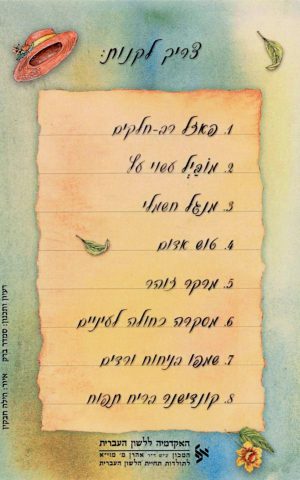 צריך לקנות:
1. פאזל רב-חלקים
2. מוֹבַּיְל עשוי עץ
3. מנגל חשמלי
4. טוש אדום
5. מרקר זוהר
6. מסקרה כחולה לעיניים
7. שמפו בניחוח ורדים
8. קונדישנר בריח תפוח
האקדמיה ללשון העברית
המכון ע״ש ד״ר אהרן מ׳ מזי״א
לתולדות תחיית הלשון העברית
רעיון ותכנון: סמדר ברק
איור: הילה חבקין